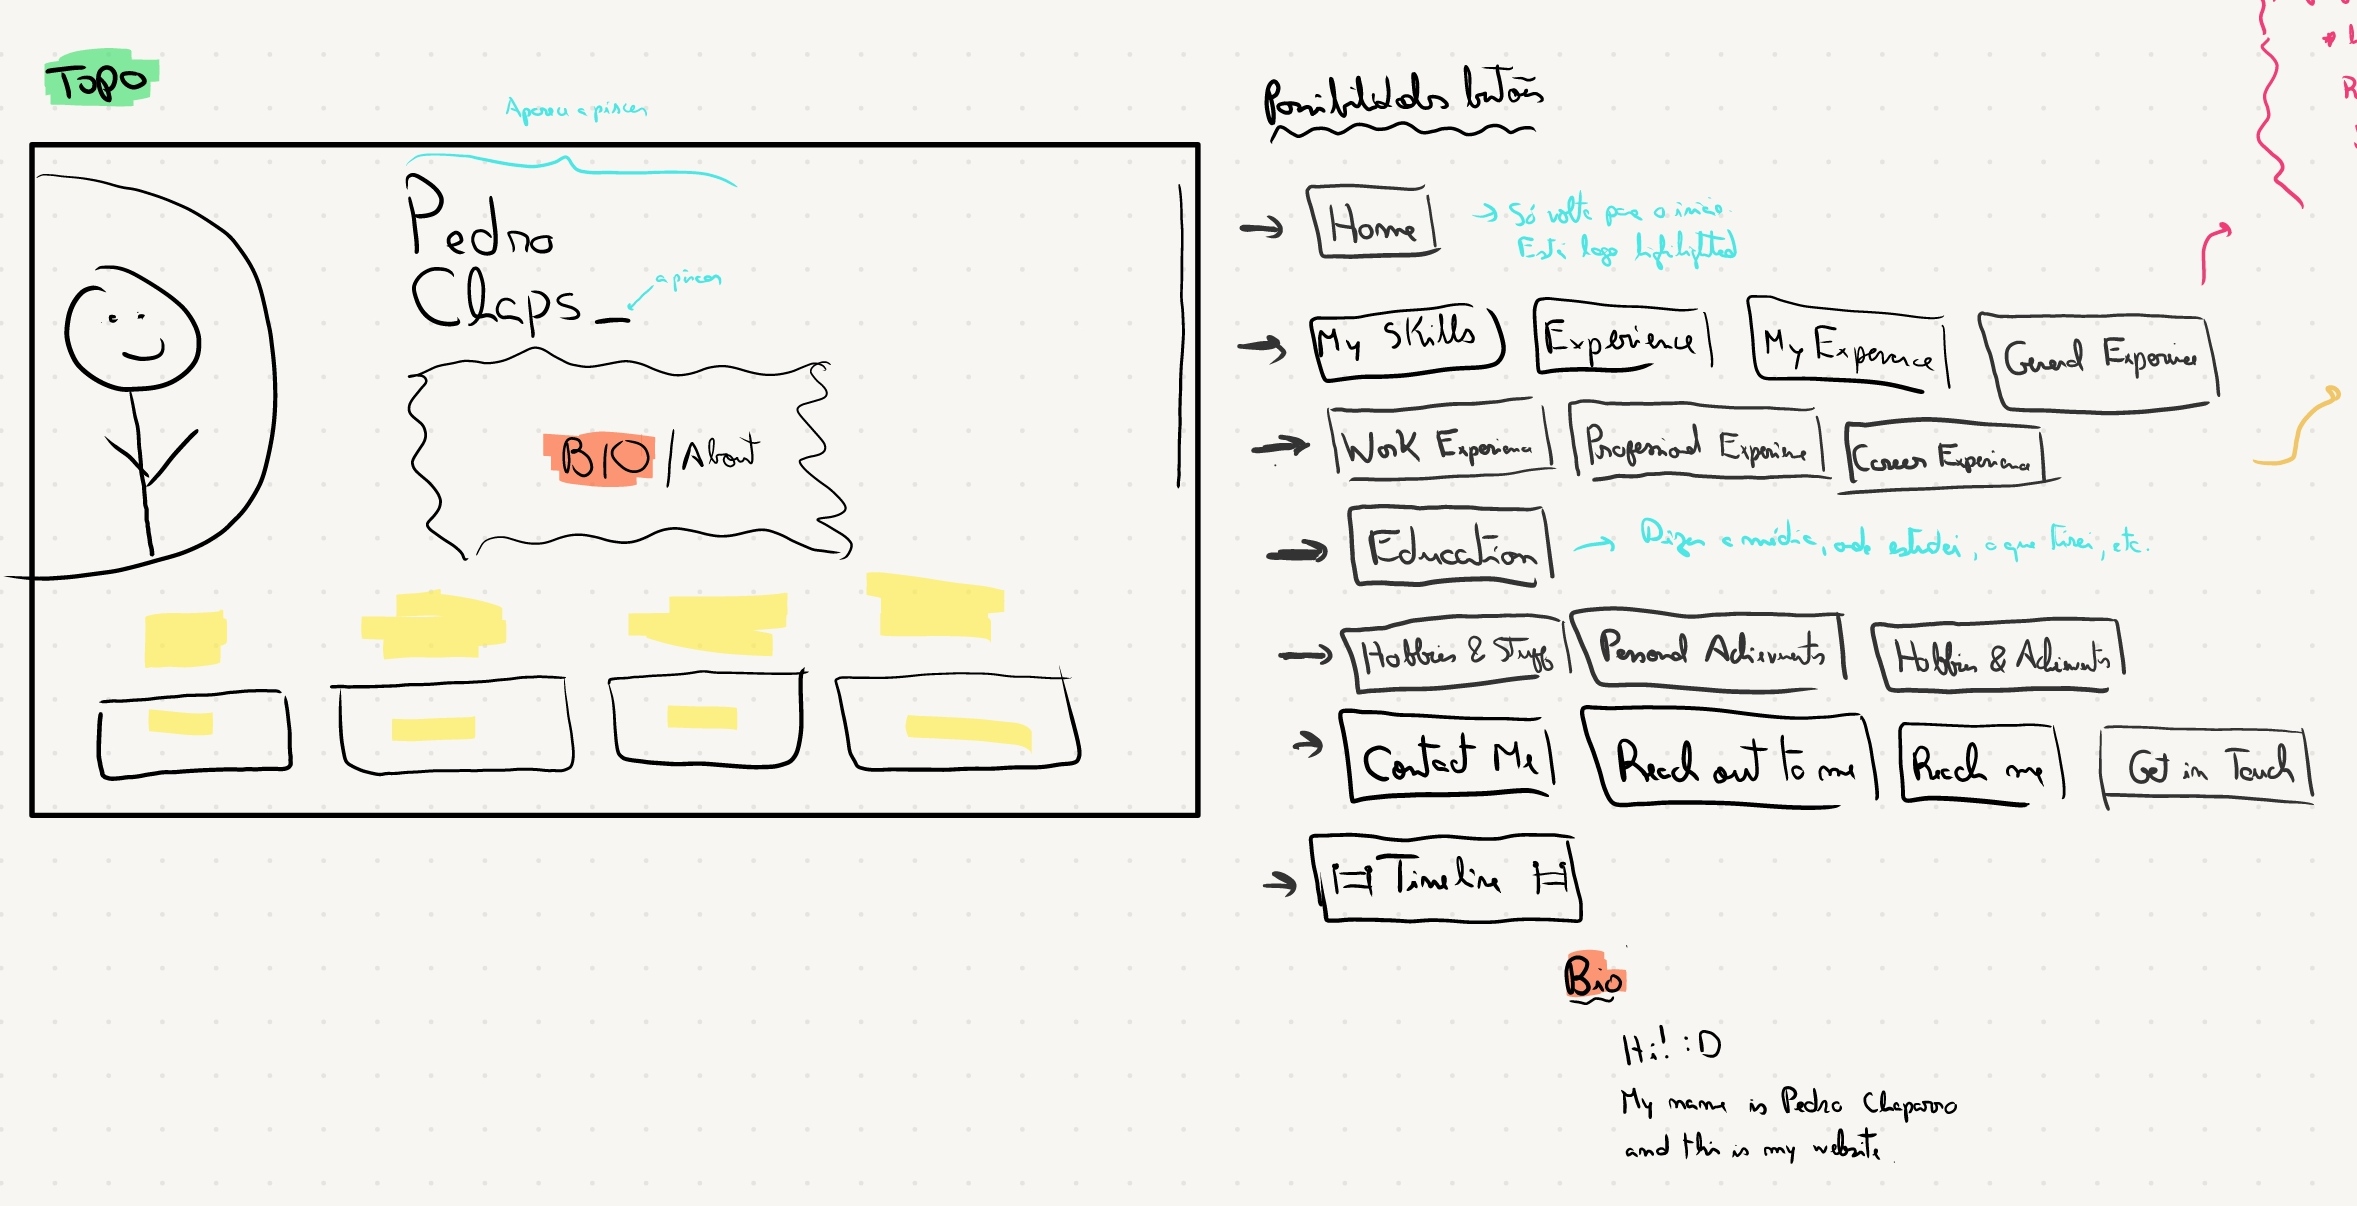 Topo
Aparece a piscar
Pedro
Chaps_
a piscar
BIO / About
Possibilidades botões
Home
→ Só volta para o início.
Está logo highlighted
My Skills
Experience
My Experience
General Experience
Work Experience
Professional Experience
Career Experience
Education
→ Dizer a média, onde estudei, o que tirei, etc.
Hobbies & Stuff
Personal Achievments
Hobbies & Achievments
Contact Me
Reach out to me
Reach me
Get in Touch
Timeline
Bio
Hi! :D
My name is Pedro Chaparro
and this is my website